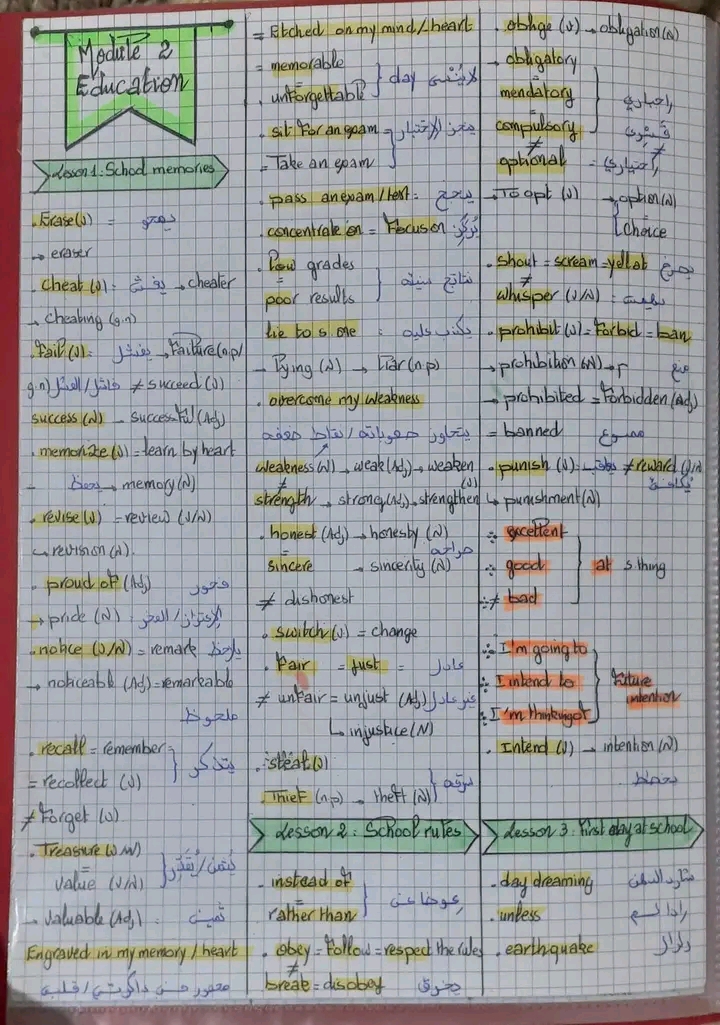 Module 2
Education
Lesson 1: School memories
. Erase (v) = يمحو
→ eraser
. cheat (v) = يغش → cheater
→ cheating (g.n)
. Fail (v) : يفشل → Failure (n.p/
g.n) فاشل / الفشل ≠ succeed (v)
success (N) → successful (Adj)
. memorize (v) = learn by heart
- يحفظ → memory (N)
. revise (v) = review (v/N)
↳ revision (N).
. proud of (Adj) فخور
→ pride (N) : الإعتزاز / الفخر
. notice (v/N) = remark يلاحظ
→ noticeable (Adj) = remarkable
ملحوظ
. recall = remember
= recollect (v) } يتذكر
≠ Forget (v)
. Treasure (v/N)
= value (v/N) } يُثمن / يُقدّر
→ valuable (Adj) : ثمين
Engraved in my memory / heart
محفور في ذاكرتي / قلبي
= Etched on my mind / heart
= memorable
= unforgettable } day لا يُنسى
. sit for an exam
= Take an exam } الإختبار
. pass an exam / test : ينجح
. concentrate on = Focus on يُركّز
. Low grades
= poor results } نتائج سيئة
. lie to s.one : يكذب عليه
→ lying (N) → liar (n.p)
. overcome my weakness
يتجاوز صعوباته / نقاط ضعفه
weakness (N) → weak (Adj) → weaken (v)
≠
strength → strong (Adj) → strengthen
. honest (Adj) → honesty (N)
= صراحة
sincere → sincerity (N)
≠ dishonest
. switch (v) = change
. Fair = Just = عادل
≠ unfair = unjust (Adj) غير عادل
↳ injustice (N)
. steal (v)
. Thief (n.p) → theft (N) } سرقة
Lesson 2 : School rules
. instead of
= rather than } عوضا عن
. obey = Follow = respect the rules
≠
break = disobey يخرق
. oblige (v) → obligation (N)
→ obligatory
=
mendatory
=
compulsory } إجباري
≠
optional = إختياري
→ To opt (v) → option (N)
choice
. shout = scream = yell at يصرخ
≠
whisper (v/N) :
. prohibit (v) = Forbid = ban
→ prohibition (N) → منع
→ prohibited = Forbidden (Adj)
= banned ممنوع
. punish (v) : يعاقب ≠ reward (v/N) يُكافئ
↳ punishment (N)
∴ excellent
∴ good
∴ ≠ bad } at s.thing
∴ I'm going to
∴ I intend to
∴ I'm thinking of } Future intention
. Intend (v) → intention (N)
Lesson 3 : First day at school
. day dreaming شارد الذهن
. unless إذا لم
. earthquake زلزال